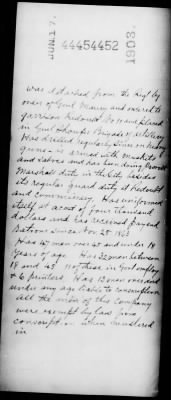 JUN 17
44454452
1903.
was detached from the Regt by
order of Genl Maury and ordered to
garrison Redoubt No
in Genl Brigade of Artillery
Has drilled regularly since on heavy
guns is armed with muskets
and Sabres and has been doing Provost
Marshals duty in the City besides
its regular guard duty at Redoubt
and commissary, Has uniformed
itself at a cost of four thousand
dollars and has received pay and
Rations since Nov 25 1863
Has 47 men over 45 and under 18
years of age Has 32 men between
18 and 45 not these in Govt employ
& 6 printers Has 13 men over and
under any age liable to conscription
all the men of this Company
were exempt by law from
conscription when mustered
in